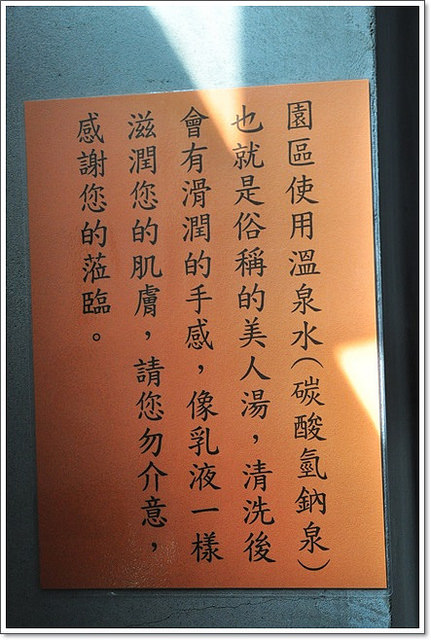 園區使用溫泉水(碳酸氫鈉泉)
也就是俗稱的美人湯，清洗後
會有滑潤的手感，像乳液一樣
滋潤您的肌膚，請您勿介意，
感謝您的蒞臨。